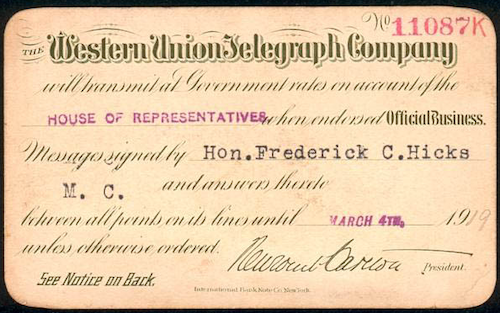 No 11087K
THE Western Union Telegraph Company
will transmit at Government rates on account of the
HOUSE OF REPRESENTATIVES, when endorsed Official Business.
Messages signed by Hon. Frederick C. Hicks
M. C. and answers thereto
between all points on its lines until MARCH 4TH, 1919
unless otherwise ordered.
Newcomb Carlton President.
See Notice on Back.
International Bank Note Co. New York.